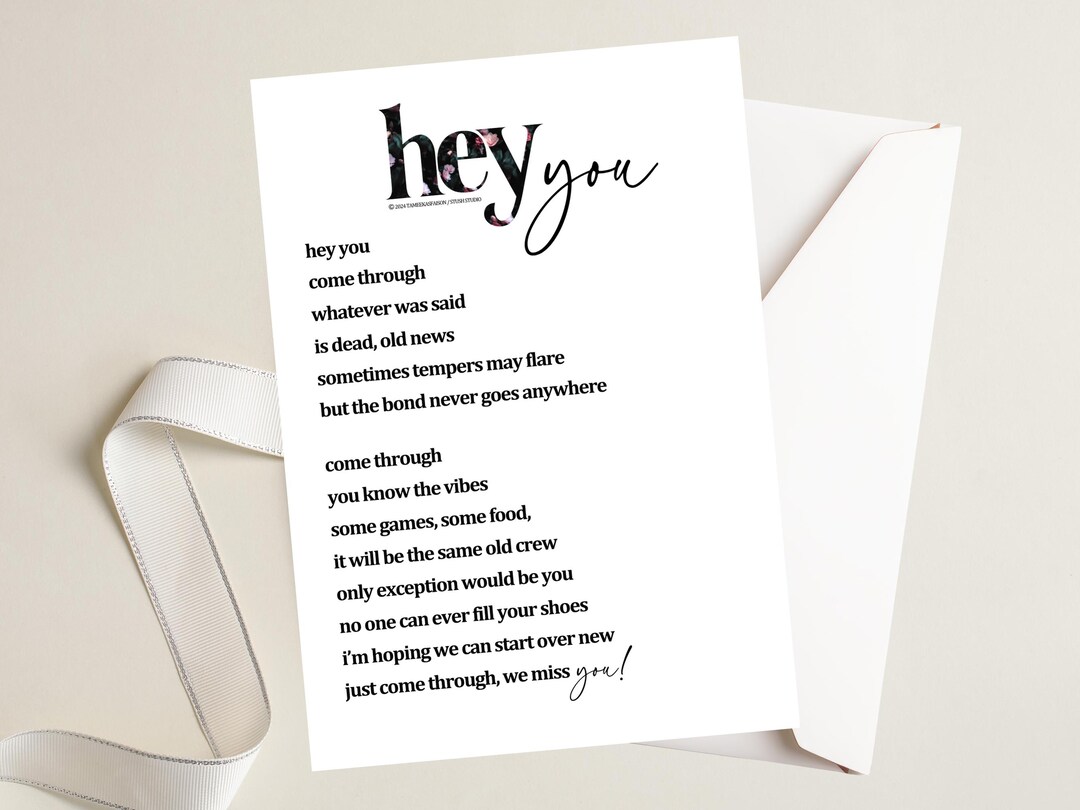 hey you
© 2024 TAMEEKASFAISON / STUSH STUDIO
hey you
come through
whatever was said
is dead, old news
sometimes tempers may flare
but the bond never goes anywhere
come through
you know the vibes
some games, some food,
it will be the same old crew
only exception would be you
no one can ever fill your shoes
i'm hoping we can start over new
just come through, we miss you!